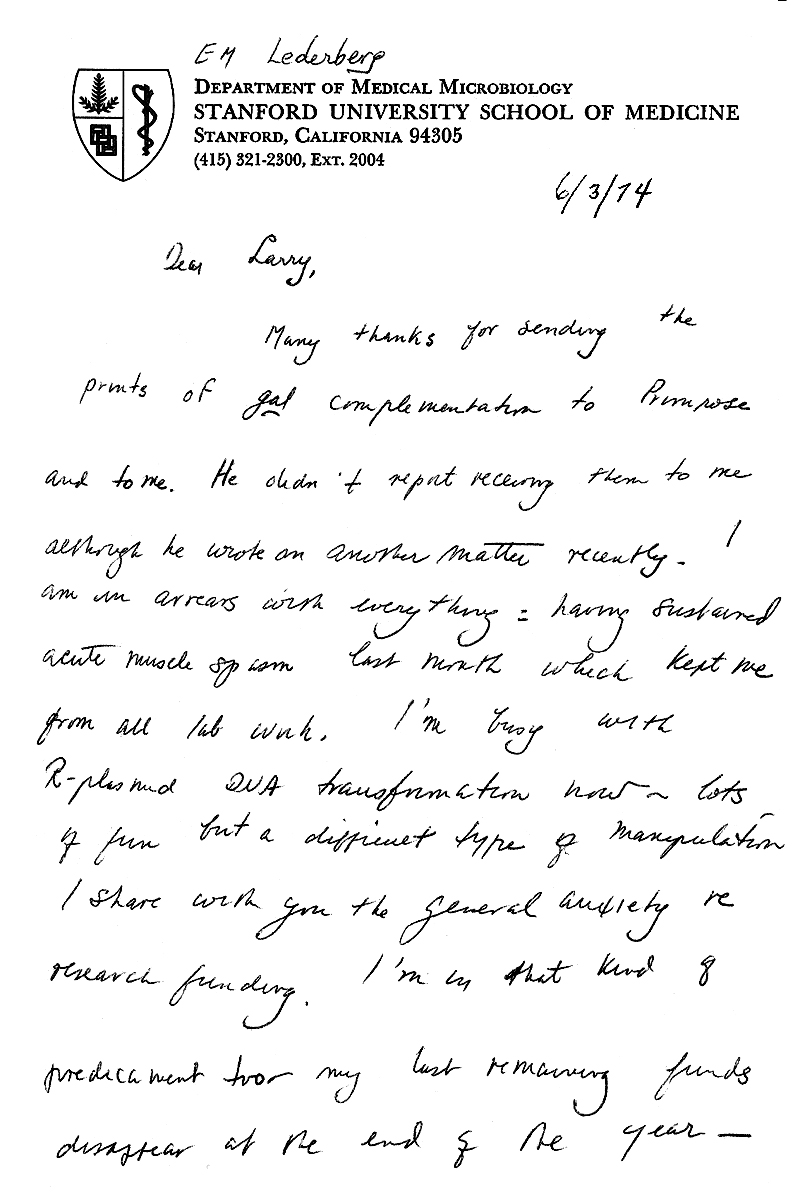 EM Lederberg
DEPARTMENT OF MEDICAL MICROBIOLOGY
STANFORD UNIVERSITY SCHOOL OF MEDICINE
STANFORD, CALIFORNIA 94305
(415) 321-2300, EXT. 2004
6/3/74
Dear Larry,
Many thanks for sending the
prints of gal complementation to Primrose
and to me. He didn't report receiving them to me
although he wrote on another matter recently. I
am in arrears with everything = having sustained
acute muscle spasm last month which kept me
from all lab work. I'm busy with
R-plasmid DNA transformation now ~ lots
of fun but a different type of manipulation
I share with you the general anxiety re
research funding. I'm in that kind of
predicament too my last remaining funds
disappear at the end of the year —